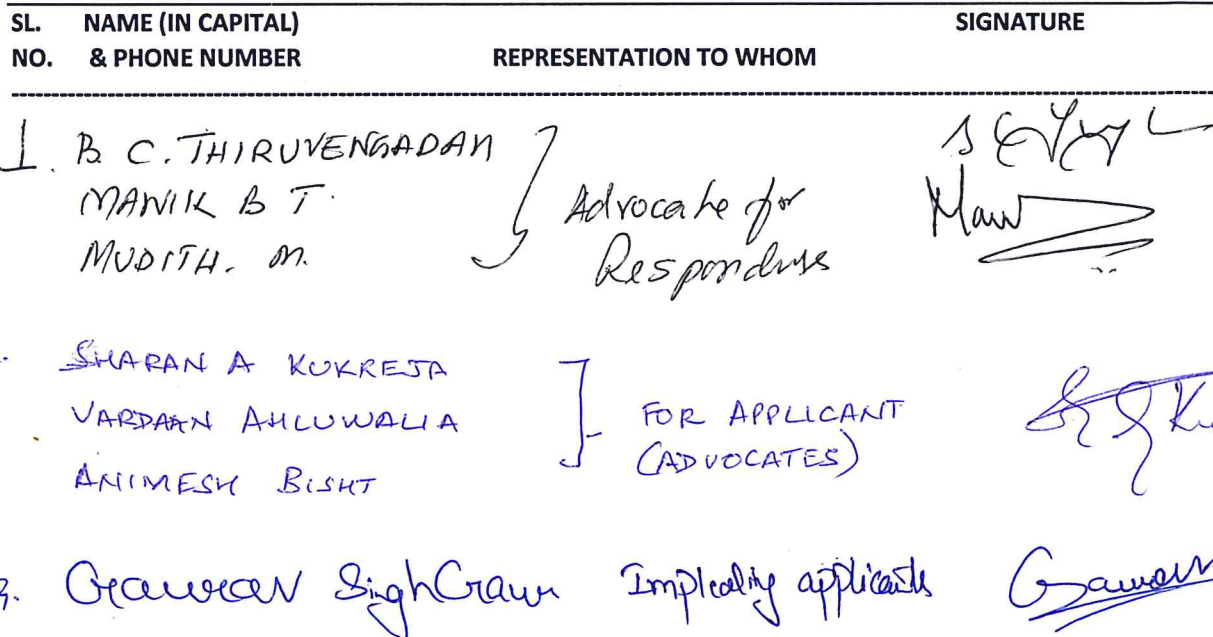 SL. NAME (IN CAPITAL) SIGNATURE
NO. & PHONE NUMBER REPRESENTATION TO WHOM
1. B. C. THIRUVENGADAM
MANIK B T.
MUDITH. M.
Advocate for
Respondents
SHARAN A KUKREJA
VARDAAN AHLUWALIA
ANIMESH BISHT
FOR APPLICANT
(ADVOCATES)
3. Gaurav Singh Impleading applicants Gaurav